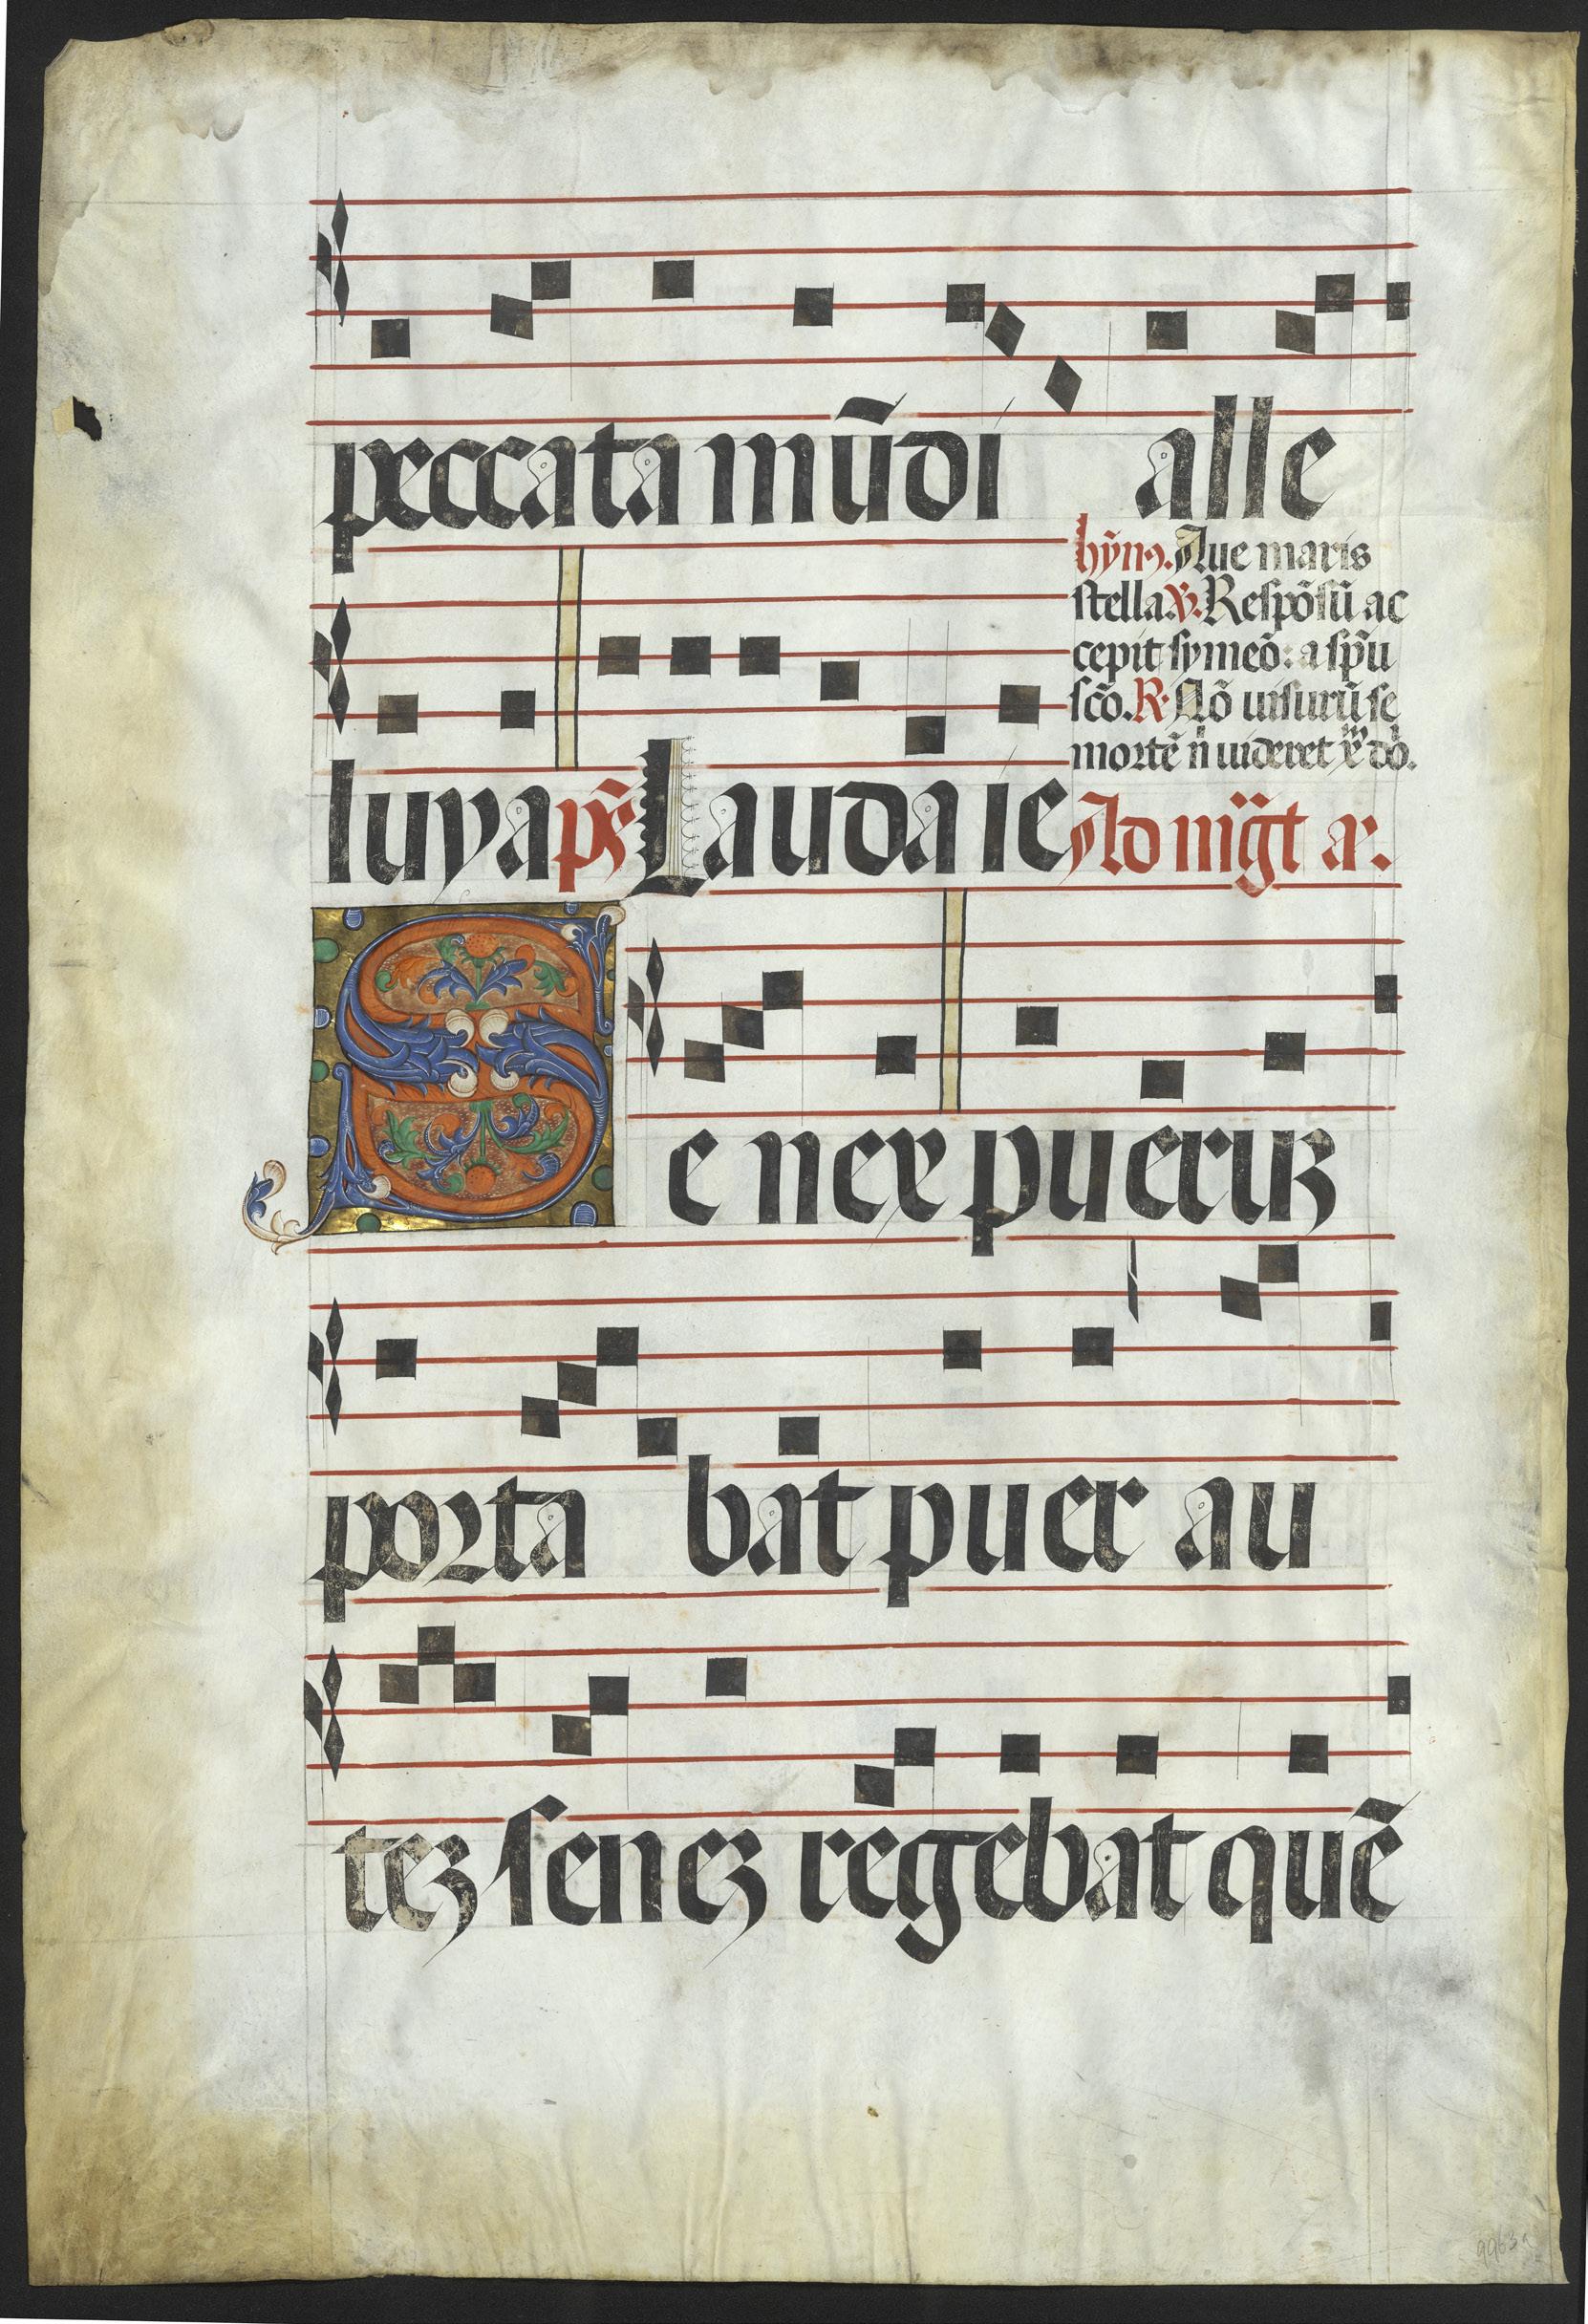 peccata mũdi alle
hỹmꝰ. Aue maris
stella. ꝟ. Respõsũ ac
cepit symeõ: a sp̃u
sc̃o. R. Nõ uisurũ se
mortẽ ñ uideret
luya ps̃ Lauda ie Ad mg̃t añ.
S e nex puerũ
porta bat puer au
teʒ seneʒ regebat quẽ